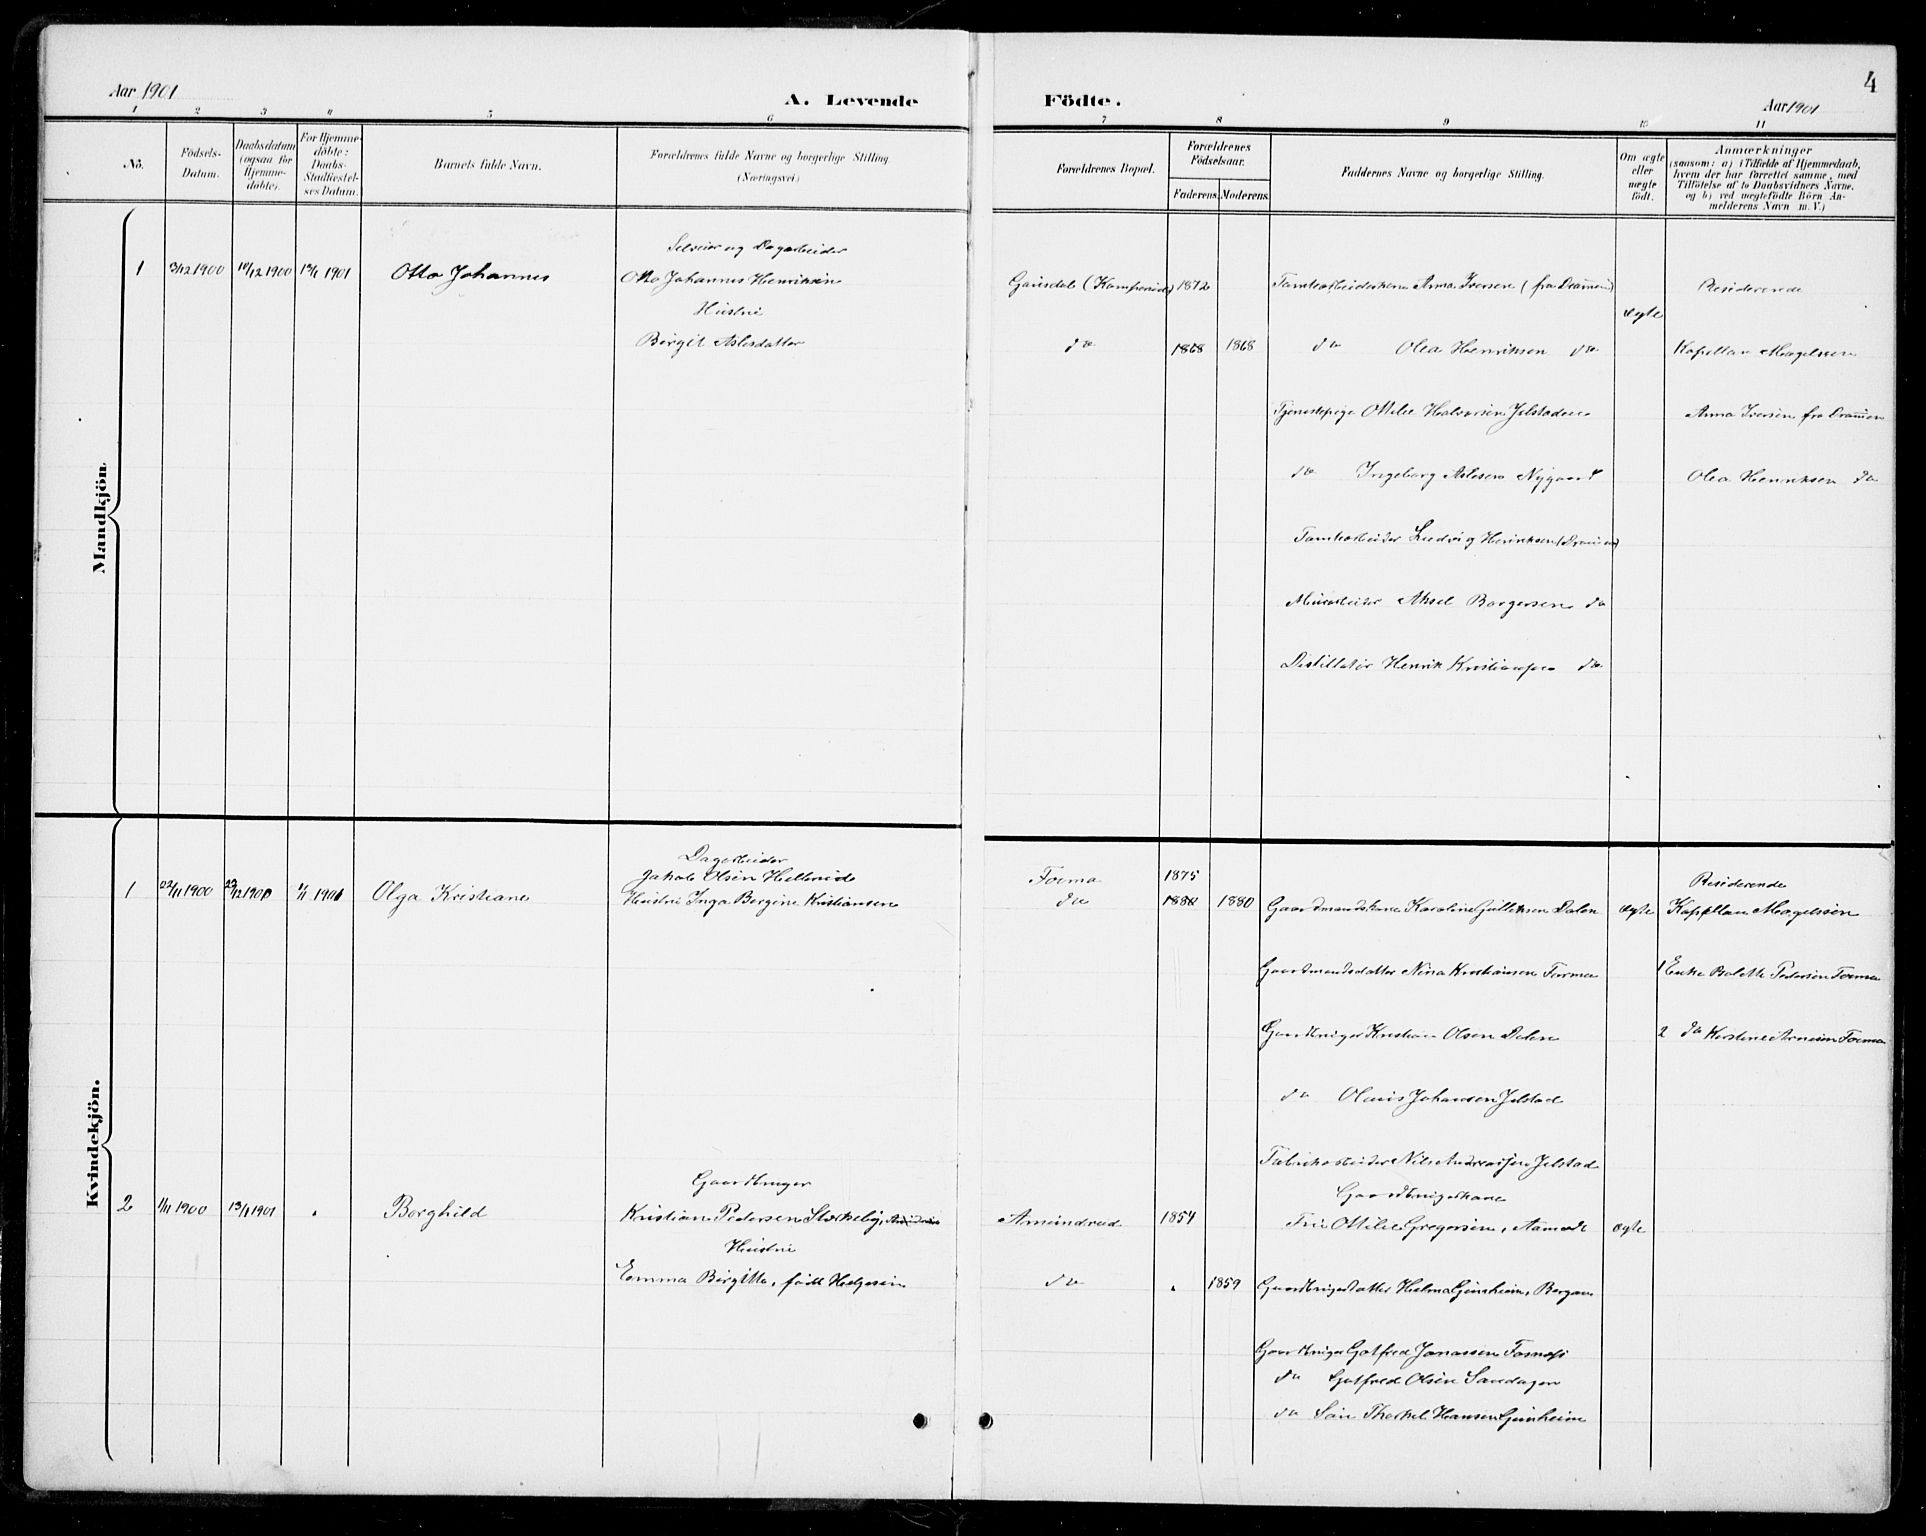 Aar 1901
A. Levende Födte.
Aar 1901
4
1 2 3 4 5 6 7 8 9 10 11
No.
Födsels-Datum.
Daabsdatum (ogsaa for Hjemme-döbte).
For Hjemme-döbte: Daabs-Stadfæstelses Datum.
Barnets fulde Navn.
Forældrenes fulde Navne og borgerlige Stilling. (Næringsvei.)
Forældrenes Bopæl.
Forældrenes Födselsaar.
Faderens. Moderens.
Faddernes Navne og borgerlige Stilling.
Om ægte eller uægte født.
Anmærkninger
(saasom: a) (Tilfælde af Hjemmedaab,
hvem der har forrettet samme, med
Tilföielse af to Daabsvidners Navne.
og b) ved uægtefödte Börn An-
melderens Navn m. V.)
Mandkjön.
Selveier og Dagarbeider
1 3/12 1900 10/12 1900 13/1 1901 Otto Johannes
Otto Johannes Henriksen
Hustru
Birgit Aslesdatter
1872
do 1868 1868
Anna Iversen (fra Drammen)
do Olea Henriksen do
Tjenestepige Ottilie Halvorsen Jelstadene
do Ingeborg Aslesen Nygaard
Tomtearbeider Ludvig Henriksen (Drammen)
Murarbeider Aksel Borgersen do
Distillatør Henrik Kristiansen do
ægte
Residerende
Kapellan Magelssen
Anna Iversen fra Drammen
Olea Henriksen do
Kvindekjön.
Dagarbeider
1 22/11 1900 1/1 1901 Olga Kristiane
Jakob Olsen Hellerud
Hustru Inga Bergine Kristiansen
Foerma 1875
do 1880 1880
Gaardmandskone Karoline Gulliksen Dalen
Gaardmandsdatter Nina Kristiansen Foerma
Gaardbruger Kristian Olsen Dalen
do Olaus Johansen Jelstad
Fabrikarbeider Nils Andreassen Jelstad
ægte
Residerende
Kapellan Magelssen
1 Enke Bolette Pedersen Foerma
2 do Kirstine Arnesen Foerma
Gaardbruger
2 1/11 1900 13/1 1901 Borghild
Kristian Pedersen
Hustru
Emma Birgitte, født Helgesen
Amundrud 1854
do 1859
Gaardbrugerkone
Fru Ottilie Gregersen, Aamodt
Gaardbrugerdatter Helma Gunheim, Bergan
Gaardbruger Gotfred Jonassen
do Gotfred Olsen Sandager
do Søn Therkel Hansen Gunheim
ægte